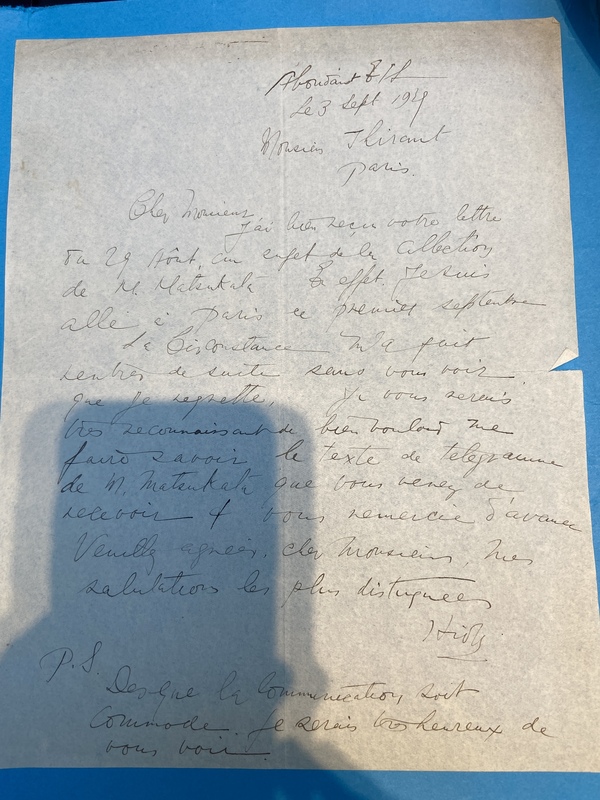 Abondant E&L
Le 3 Sept 1949
Monsieur Thiraut
Paris.
Cher Monsieur
J'ai bien reçu votre lettre
du 29 Aout, au sujet de la Collection
de M. Matsukata En effet. Je suis
allé à Paris ce premier septembre
La Circonstance m'a fait
rentrer de suite sans vous voir
que je regrette. Je vous serais
très reconnaissant de bien vouloir me
faire savoir le texte de telegramme
de M. Matsukata que vous venez de
recevoir & vous remercie d'avance
Veuillez agréer, cher Monsieur, mes
salutations les plus distinguées
P.S.
Des que la Communication soit
Commode. Je serais très heureux de
vous voir.